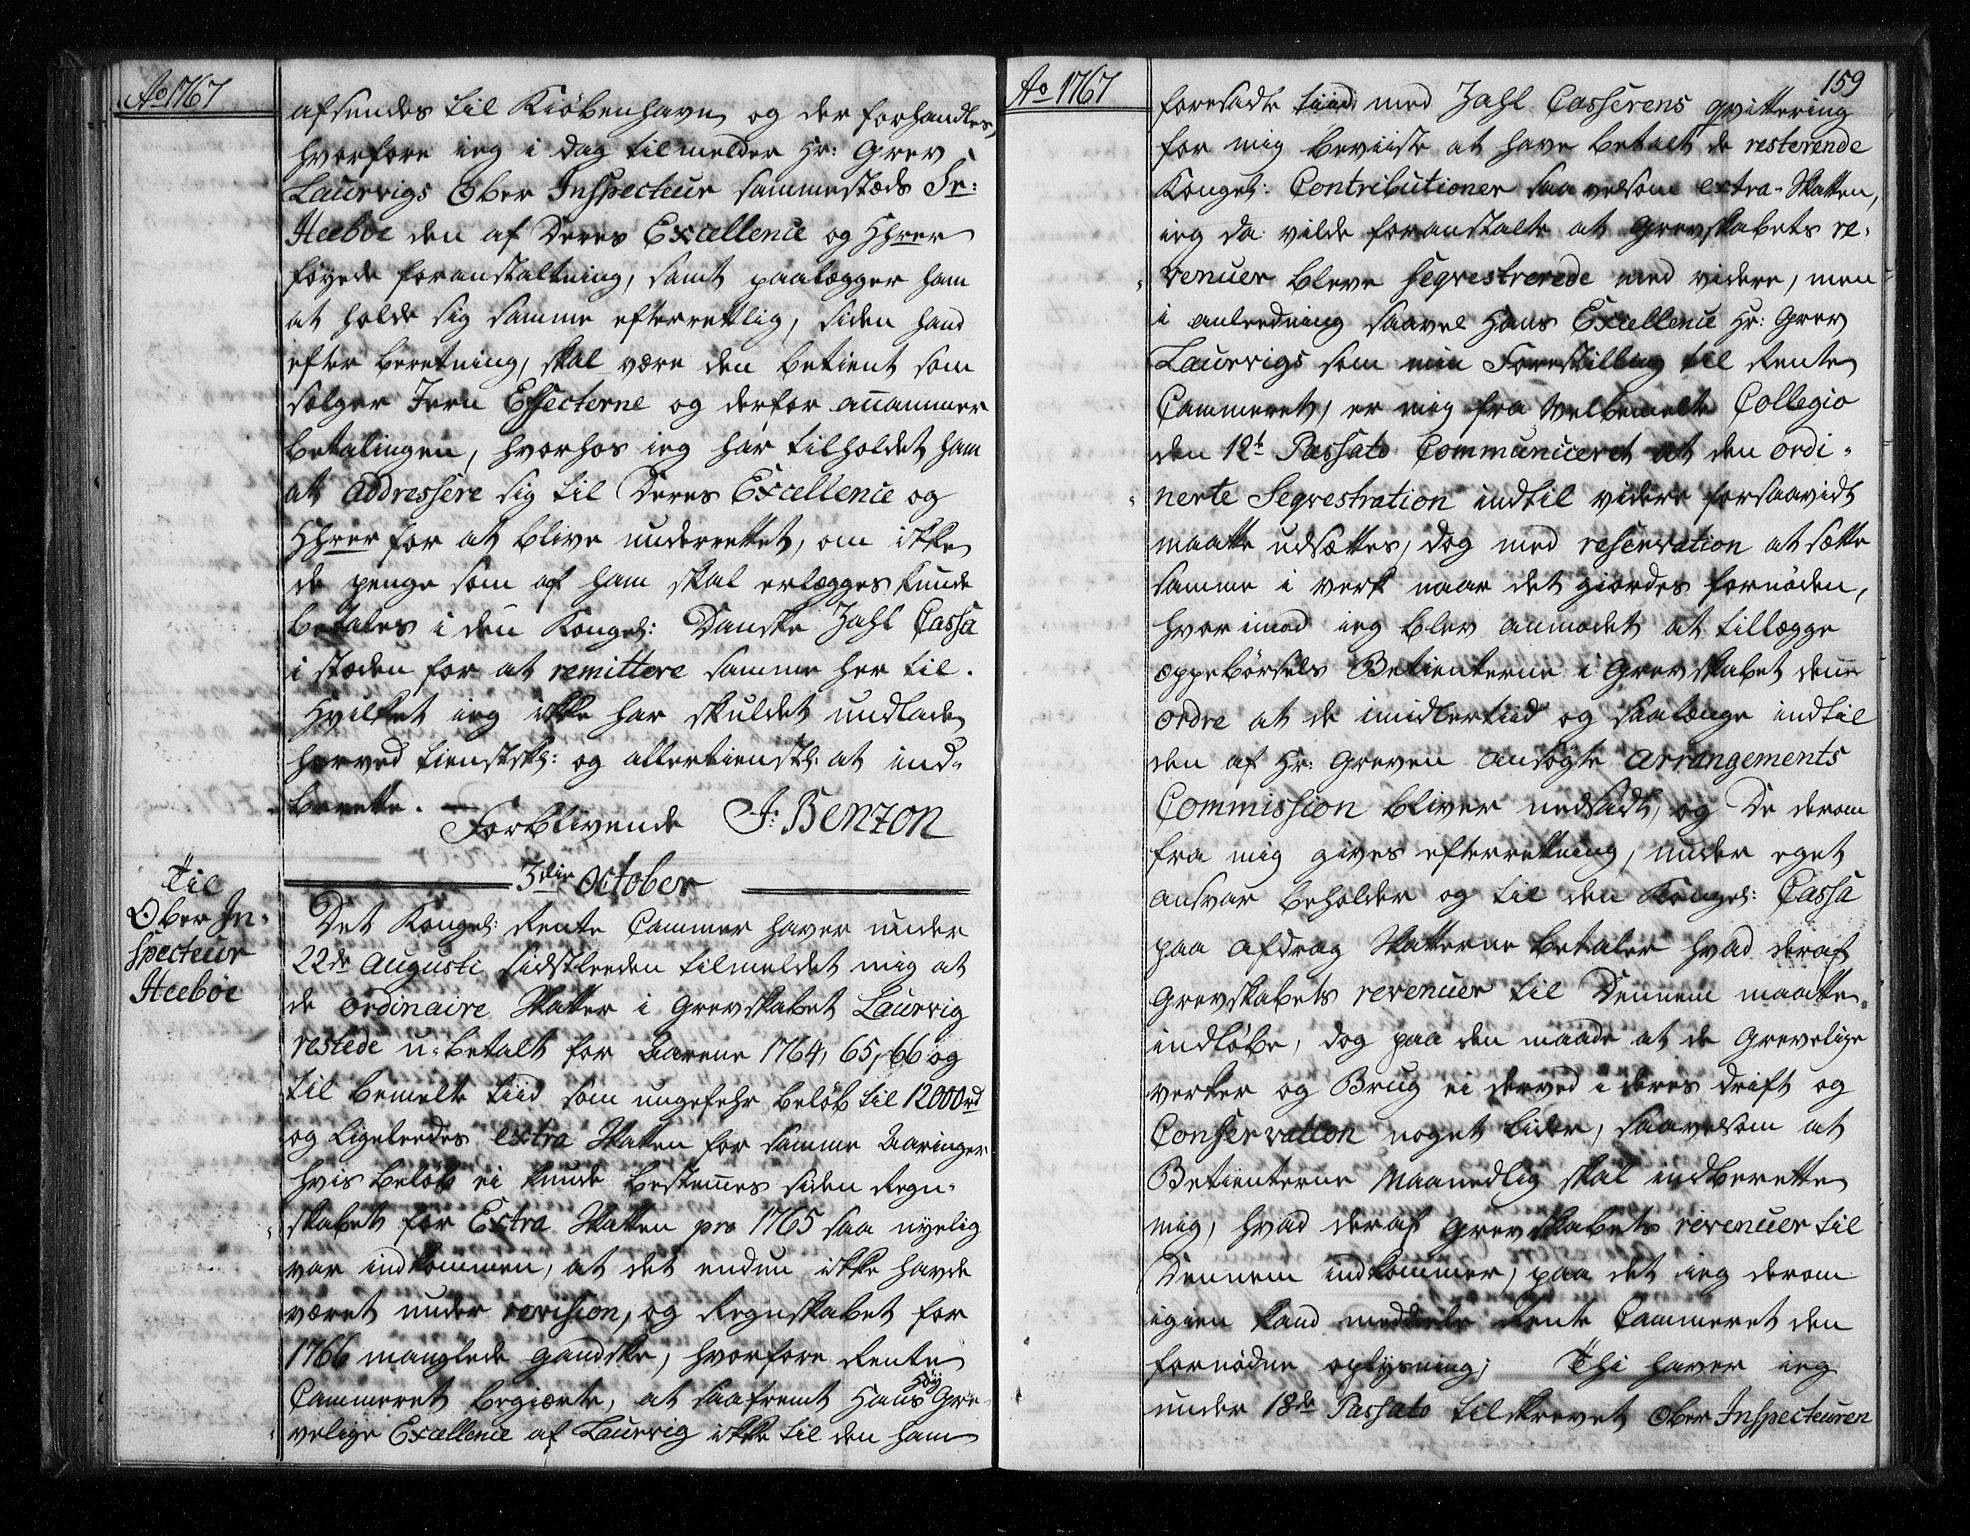 Ao 1767
afsendes til Kiöbenhavn og der forhandles,
hvorfore ieg i Dag tilmelder Hr: Grev
Laurvigs Ober Inspecteur sammestæds Sr:
Heeboe den af Deres Excellence og Hhrer
föyede foranstaltning, samt paalægger ham
at holde sig samme efterrettlig, siden hand
efter beretning, skal være den betient som
sælger Jern Effecterne og derfor annammer
betalingen, hvorhos ieg har tilholdet ham
at addressere sig til Deres Excellence og
Hhrer for at blive underrettet, om ikke
de penge som af ham skal erlægges kunde
betales i den Kongel: Danske Zahl Cassa
i stæden for at remittere samme her til.
Hvilket ieg ikke har skuldet undlade
herved tienstskl: og allertienstl: at ind-
berette. —
Forblivende J: Benzon
3die October
Til
Ober In-
specteur
Heeböe
Det Kongel: Rente Cammer haver under
22de Augusti sidstleeden tilmeldet mig at
de ordinaire Skatter i Grevskabet Laurvig
restede u-betalt for Aarene 1764, 65, 66 og
til bemelte tiid som ungefehr belöb til 12000rd
og ligeleedes extra Skatten for samme Aaringer
hvis belöb ei kunde bestemmes siden Regn-
skabet for Extra Skatten pro 1765 saa nyelig
var indkommen, at det endnu ikke havde
været under revision, og Regnskabet for
1766 manglede gandske, hvorfore Rente
Cammeret begierte, at saafremt Hans Höy Gre-
velige Excellence af Laurvig ikke til den ham
Ao 1767
159
foresadte tiid med Zahl Casserens qvittering
for mig beviiste at have betalt de resterende
Kongel: Contributioner saavelsom extra-Skatten,
ieg da vilde foranstalte at Grevskabets re-
venuer bleve seqvestrerede med videre, men
i anleedning saavel Hans Excellence Hr: Grev
Laurvigs som min Forestilling til Rente
Cammeret, er mig fra Velbemelte Collegio
den 12t Passato Communiceret at den ordi-
nerte Seqvestration indtil videre forsaavidt
maatte udsættes, dog med reservation at sætte
samme i verk naar det giordes fornöden,
hvorimod ieg blev anmodet at tillægge
oppebörsels Betienterne i Grevskabet denne
Ordre at de imidlertiid og saalænge indtil
den af Hr: Greven ansögte arrangements
Commission bliver nedsadt, og De derom
fra mig gives efterretning, under eget
ansvar beholder og til den Kongel: Cassa
paa afdrag Skatterne betaler hvad deraf
Grevskabets revenuer til Dennem maatte
indlöbe, dog paa den maade at de Grevelige
verker og Brug ei derved i deres drift og
Conservation noget lider, saavelsom at
Betienterne Maanedlig skal indberette
mig, hvad deraf Grevskabets revenuer til
Dennem indkommer, paa det ieg derom
igien kand meddeele Rente Cammeret den
fornödne oplysning; Thi haver ieg
under 18de Passato tilskrevet Ober Inspecteuren